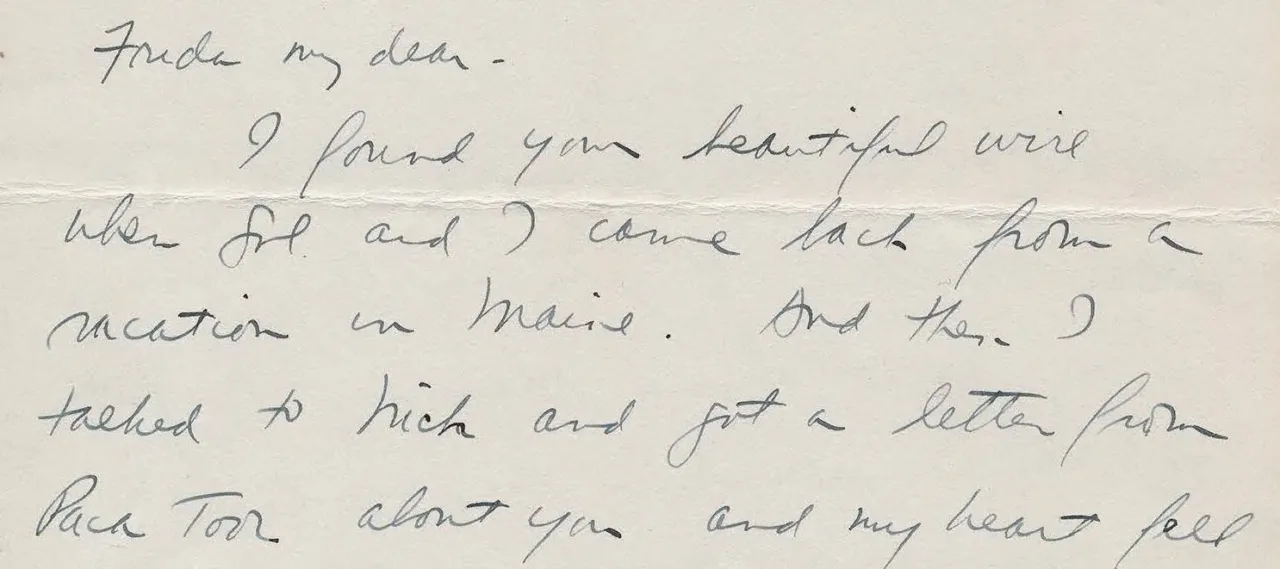 Frida my dear -
I found your beautiful wire
when Sol and I came back from a
vacation in Maine. And then I
talked to Nick and got a letter from
Paca Toor about you and my heart fell